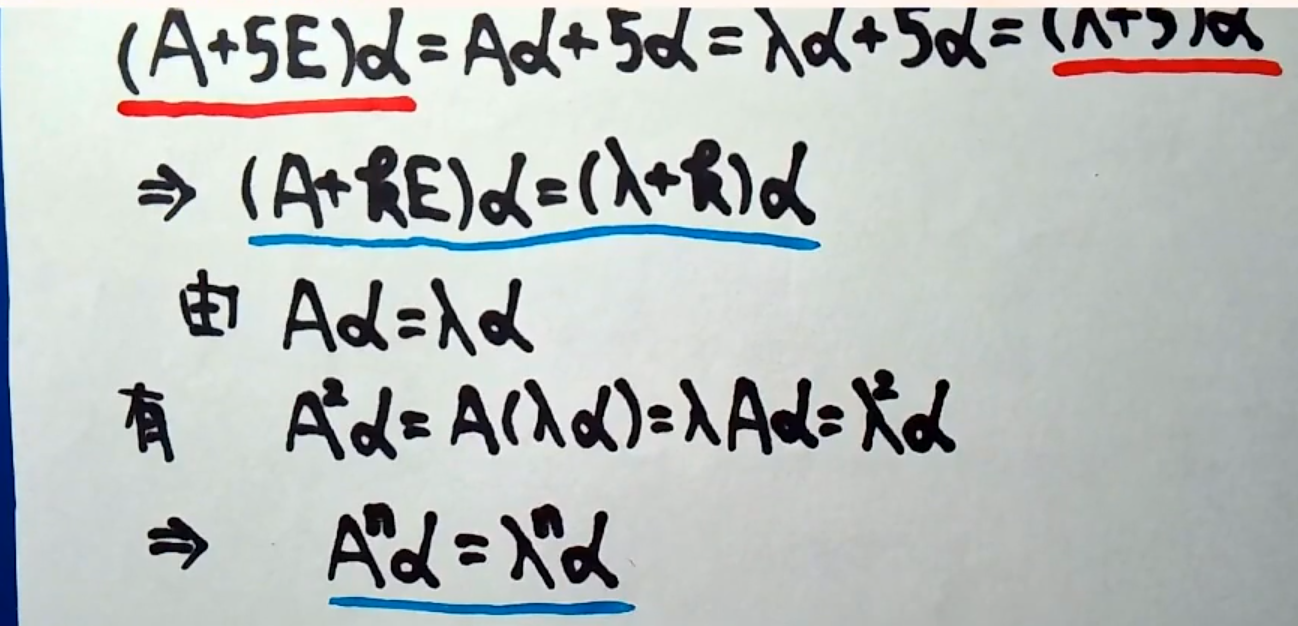 (A+5E)α=Aα+5α=λα+5α=(λ+5)α
⇒ (A+kE)α=(λ+k)α
由 Aα=λα
有 A²α=A(λα)=λAα=λ²α
⇒ Aⁿα=λⁿα